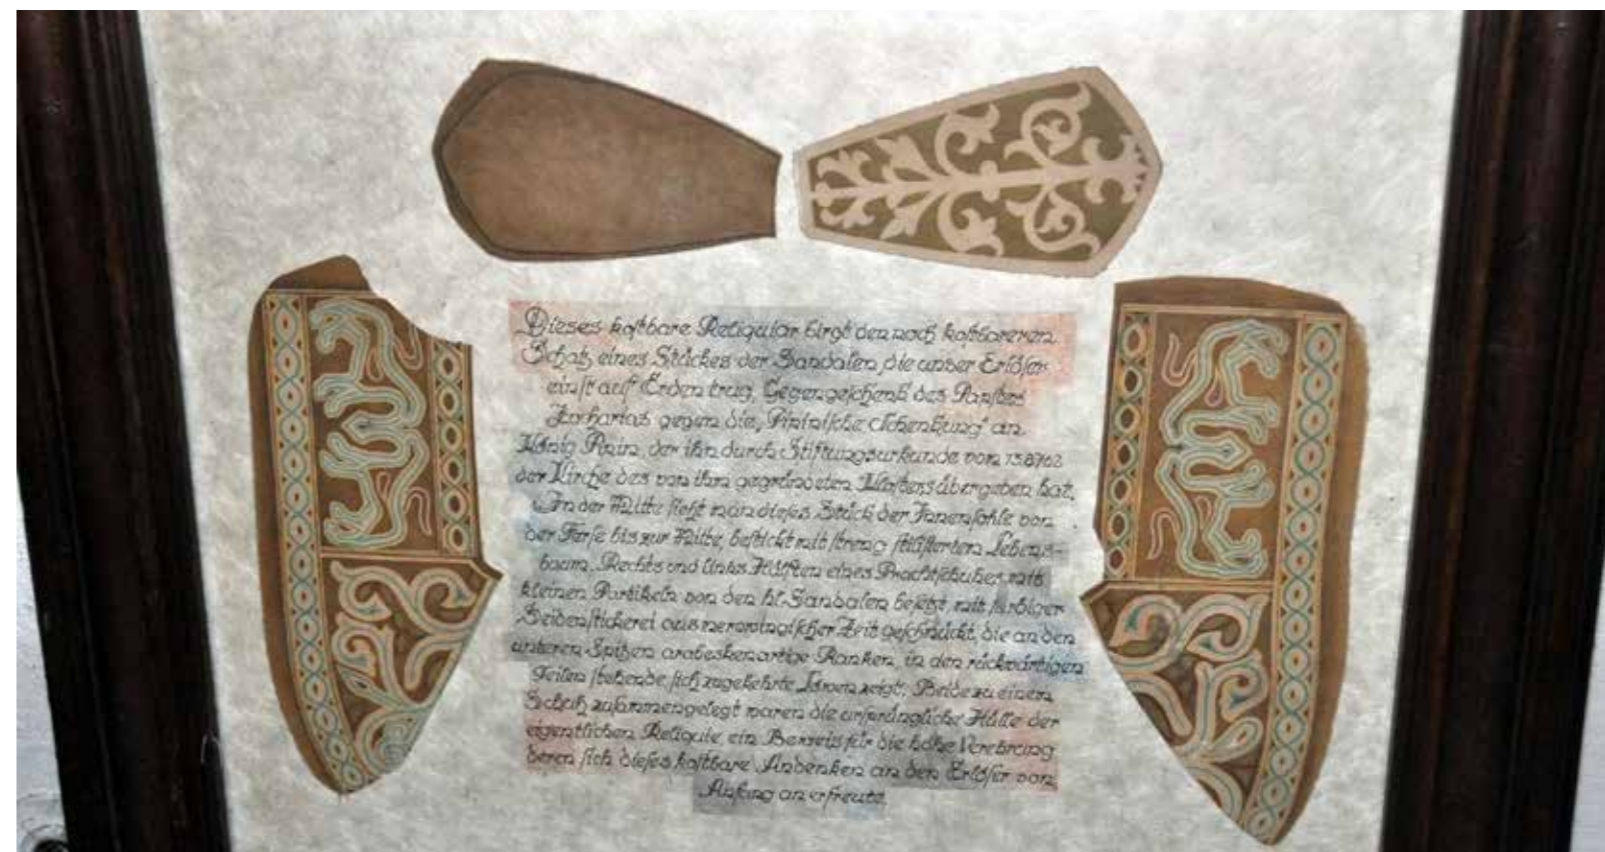 Dieses kostbare Reliquiar birgt den noch kostbareren
Schatz eines Stückes der Sandalen, die unser Erlöser
einst auf Erden trug, Gegengeschenk des Papstes
Zacharias gegen die „Pipinische Schenkung" an
König Pipin, der ihn durch Stiftungsurkunde vom 13.8.762
der Kirche des von ihm gegründeten Klosters übergeben hat.
In der Mitte sieht man dieses Stück der Innensohle von
der Ferse bis zur Mitte, bestickt mit streng stilisiertem Lebens-
baum. Rechts und links Hälften eines Prachtschuhes, mit
kleinen Partikeln von den hl. Sandalen besetzt, mit farbiger
Seidenstickerei aus merowingischer Zeit geschmückt, die an den
unteren Spitzen arabeskenartige Ranken, in den rückwärtigen
Teilen stehende sich zugekehrte Löwen zeigt. Beide zu einem
Schuh zusammengelegt waren die ursprüngliche Hülle der
eigentlichen Reliquie, ein Beweis für die hohe Verehrung
deren sich dieses kostbare Andenken an den Erlöser von
Anfang an erfreute.